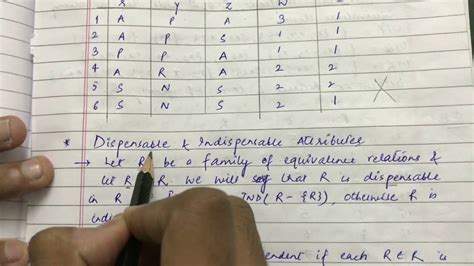 x y z w
1 A P A 3 1
2 A P S 1 1
3 P P A 1 1
4 A R A 2 2
5 S N S 2 2
6 S N S 2 1
* Dispensable & Indispensable Attributes
→ Let R be a family of equivalence relations &
let R R. we will say that R is dispensable
in R IND( R - {R}), otherwise R is
if each R ∈ R is